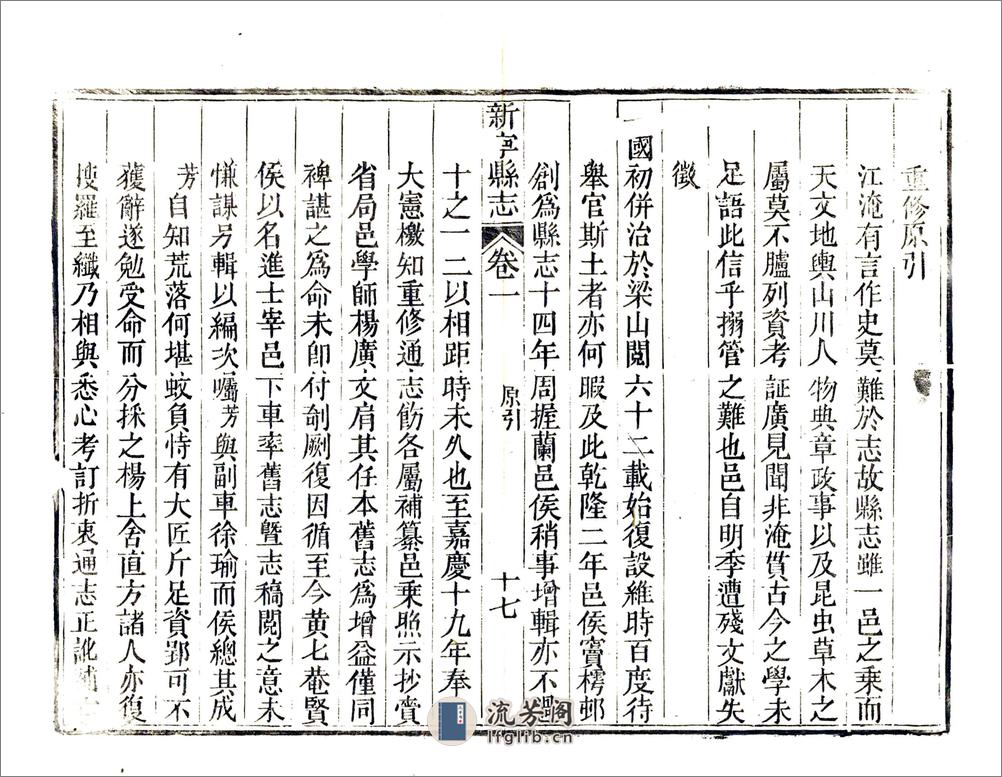 重修原引
江淹有言作史莫難於志故縣志雖一邑之乘而
天文地輿山川人物典章政事以及昆虫草木之
屬莫不臚列資考証廣見聞非淹貫古今之學未
足語此信乎搦管之難也邑自明季遭殘文獻失
徵
國初併治於梁山閱六十二載始復設維時百度待
舉官斯土者亦何暇及此乾隆二年邑侯竇樗邨
創為縣志十四年周握蘭邑侯稍事增輯亦不過
新寧縣志 卷一 原引 十七
十之一二以相距時未久也至嘉慶十九年奉
大憲檄知重修通志飭各屬補纂邑乘照示抄賫
省局邑學師楊廣文肩其任本舊志為增益僅同
裨諶之為命未即付剞劂復因循至今黄七菴賢
侯以名進士宰邑下車率舊志暨志稿閱之意未
慊謀另輯以編次囑芳與副車徐瑜而侯總其成
芳自知荒落何堪蚊負恃有大匠斤足資郢可不
獲辭遂勉受命而分採之楊上舍直方諸人亦復
搜羅至纎乃相與悉心考訂折衷通志正訛補
流芳閣
lfglib.cn